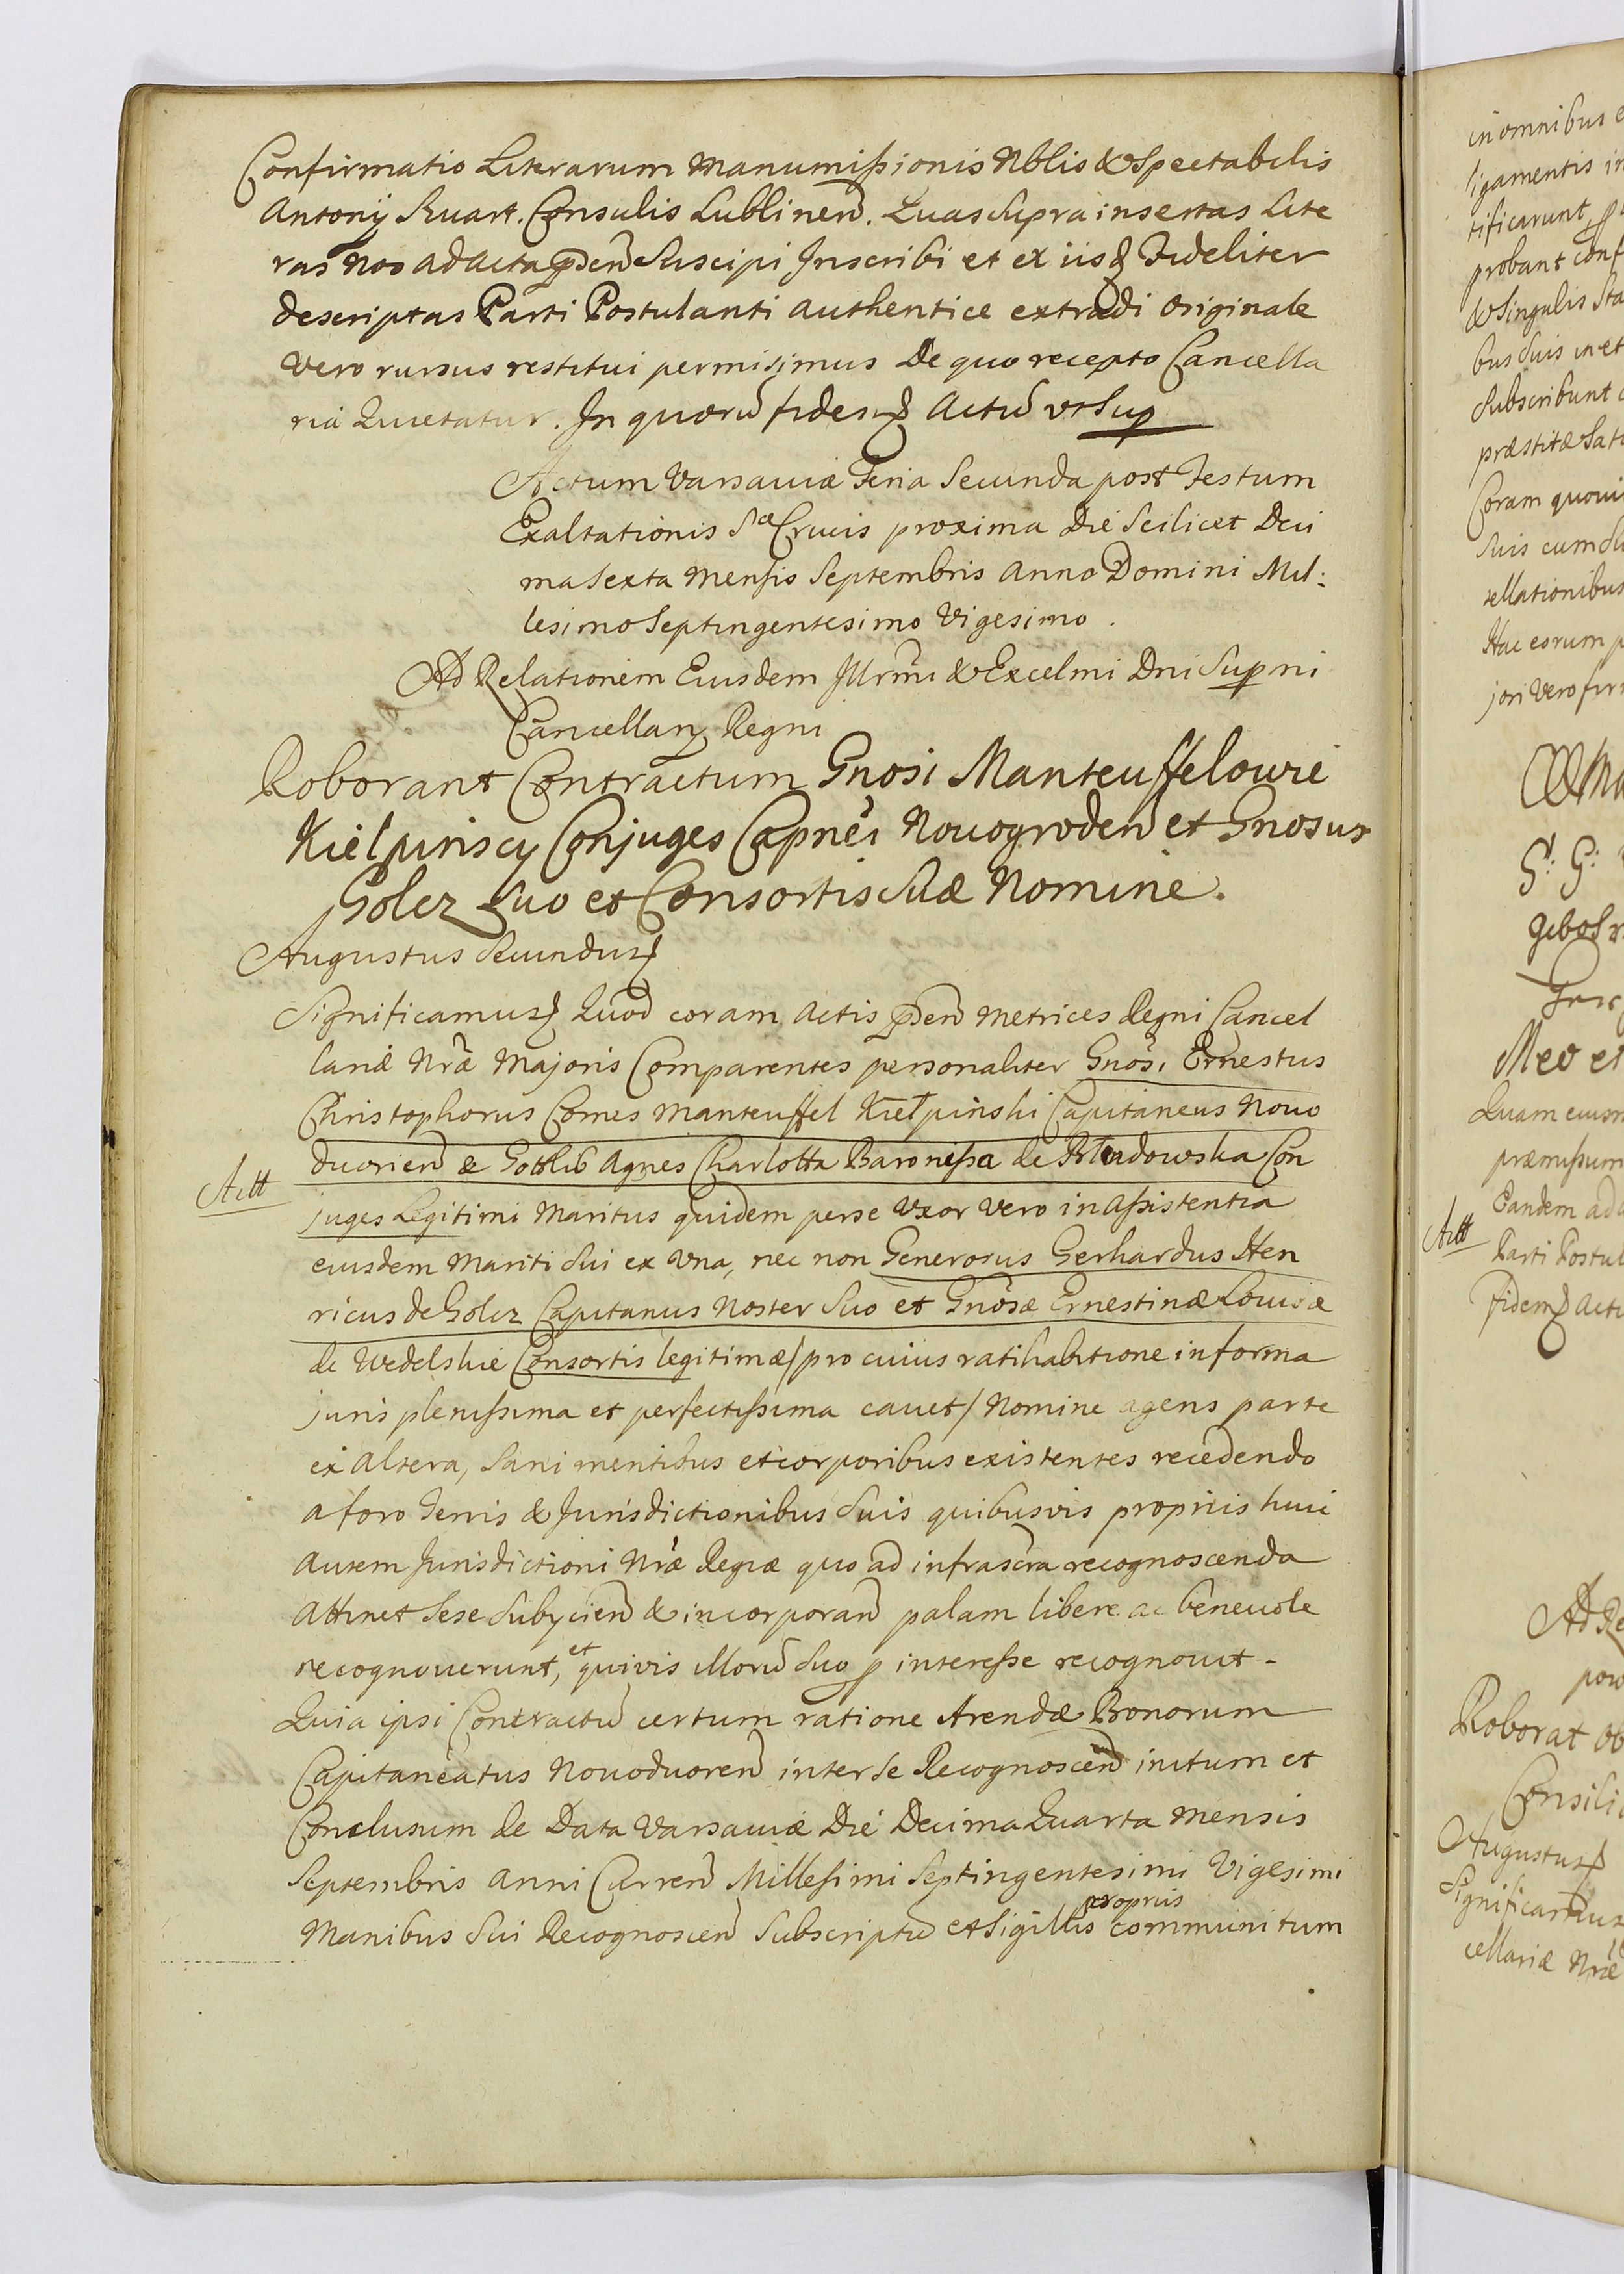 Confirmatio Literarum Manumissionis Nblis & Spectabilis
Antonÿ Ruart. Consulis Lublinen. Quas supra insertas Lite
ras Nos ad Acta psen Suscipi Inscribi et ex iisq Fideliter
descriptas Parti Postulanti authentice extradi Originale
vero rursus restitui permisimus De quo recepto Cancella
ria Quietatur. In quorũ fidem Actũ vt Sup
Actum Varsaviæ Feria Secunda post Festum
Exaltationis Sæ Crucis proxima Die Scilicet Deci
ma Sexta Mensis Septembris Anno Domini Mil:
lesimo Septingentesimo Vigesimo.
Ad Relationem Eiusdem Illrmi & Excelmi Dni Sup ni
Cancellarÿ Regni
Roborant Contractum Gnosi Manteuffelowie
Kielpinscy Conjuges Capnei Nouogroden et Gnosus
Golcz Suo et Consortis Suæ Nomine.
Augustus Secundus
Significamus Quod coram Actis psen Metrices Regni Cancel
lariæ Nræ Majoris Comparentes personaliter Gnosi Ernestus
Christophorus Comes Manteuffel Kiełpinski Capitaneus Nouo
duorien & Gottlib Agnes Charlotta Baronissa de Conjuges
juges Legitimi Maritus quidem per se Vxor vero in assistentia
eiusdem Mariti sui ex Vna, nec non Generosus Gerhardus Hen
ricus de Golcz Capitanus Noster Suo et Gnosæ Ernestinæ Louisæ
de Wedelskie Consortis legitimæ / pro cuius ratihabitione in forma
juris plenissima et perfectissima cauet / Nomine agens parte
ex altera, Sani mentibus et corporibus existentes recedendo
a foro Terris & Jurisdictionibus Suis quibusvis propriis huic
autem Jurisdictioni Nræ Regiæ quo ad infrascra recognoscenda
Attinet Sese Subÿcien & incorporan palam libere ac beneuole
recognouerunt, et quivis illorũ Suo p interesse recognouit -
Quia ipsi Contractũ certum ratione Arendæ Bonorum
Capitaneatus Nouoduoren inter se Recognoscen initum et
Conclusum de Data Varsaviæ Die Decima Quarta Mensis
Septembris Anni Curren Millesimi Septingentesimi Vigesimi
Manibus Sui Recognoscen Subscriptũ et Sigillis proprijs communitum
Actt
in omnibus
ligamentis
tificarunt
probant
& Singulis
bus Suis in et
Subscribunt
præstitæ
Coram
Suis cum
Hac eorum
jori vero
S: G:
Meo et
præmissum
Eandem
Actt
Parti
fidem
Roborat
Augustus
Significamus
cellariæ Nræ